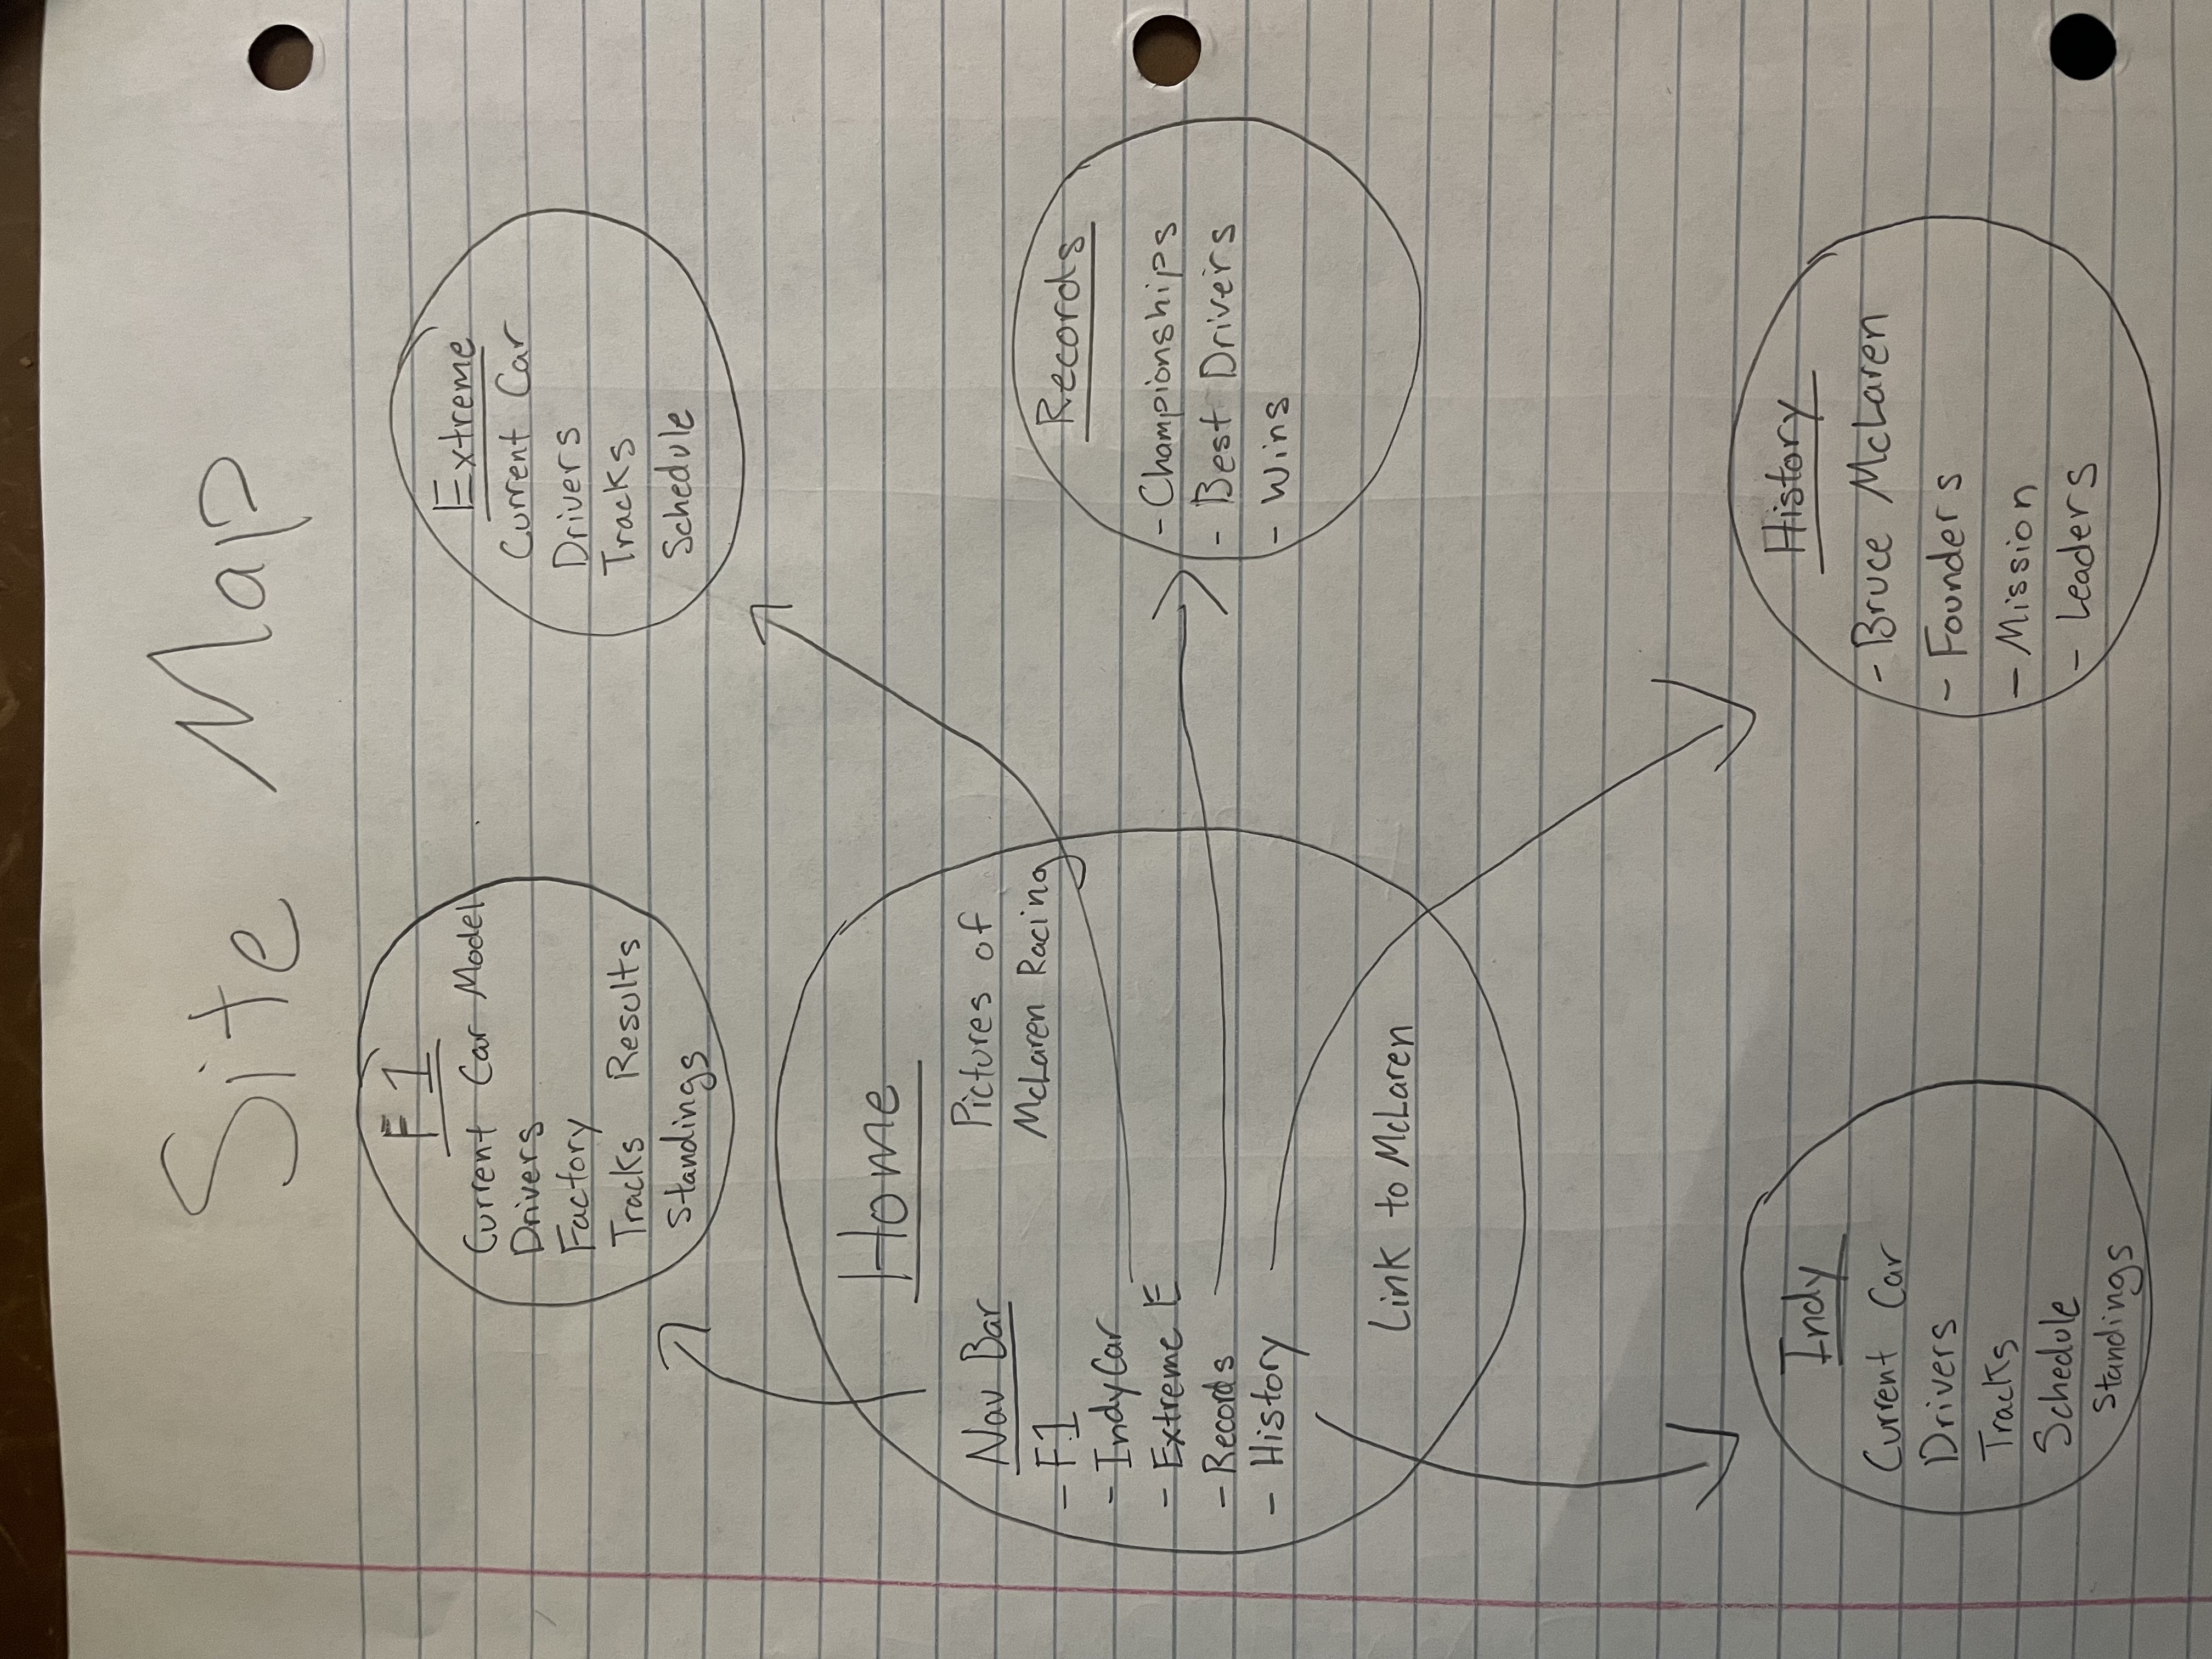 Site Map
F1
Current Car Model
Drivers
Factory
Tracks Results
Standings
Extreme
Current Car
Drivers
Tracks
Schedule
Home
Nav Bar
- F1
- IndyCar
- Extreme E
- Records
- History
Pictures of
McLaren Racing
Link to McLaren
Records
- Championships
- Best Drivers
- Wins
Indy
Current Car
Drivers
Tracks
Schedule
Standings
History
- Bruce McLaren
- Founders
- Mission
- Leaders